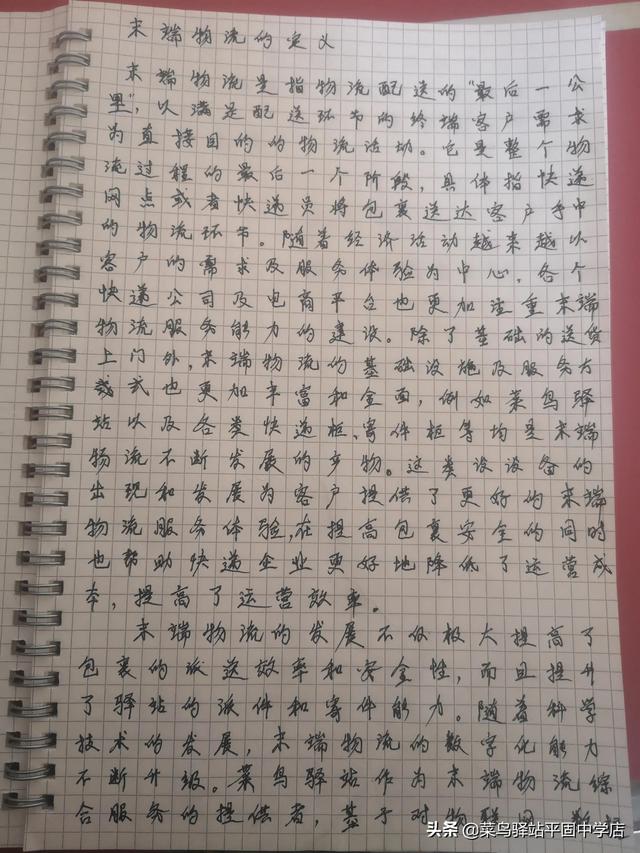 末端物流的定义
末端物流是指物流配送的"最后一公
里"，以满足配送环节的终端客户需求
为直接目的的物流活动。它是整个物
流过程的最后一个阶段，具体指快递
网点或者快递员将包裹送达客户手中
的物流环节。随着经济活动越来越以
客户的需求及服务体验为中心，各个
快递公司及电商平台也更加注重末端
物流服务能力的建设。除了基础的送货
上门外，末端物流的基础设施及服务方
式也更加丰富和全面，例如菜鸟驿
站以及各类快递柜、寄件柜等均是末端
物流不断发展的产物。这类设设备的
出现和发展为客户提供了更好的末端
物流服务体验，在提高包裹安全的同时
也帮助快递企业更好地降低了运营成
本，提高了运营效率。
末端物流的发展不仅极大提高了
包裹的派送效率和安全性，而且提升
了驿站的派件和寄件能力。随着科学
技术的发展，末端物流的数字化能力
不断升级。菜鸟驿站作为末端物流综
合服务的提供者，基于对物联网
头条 @菜鸟驿站平固中学店